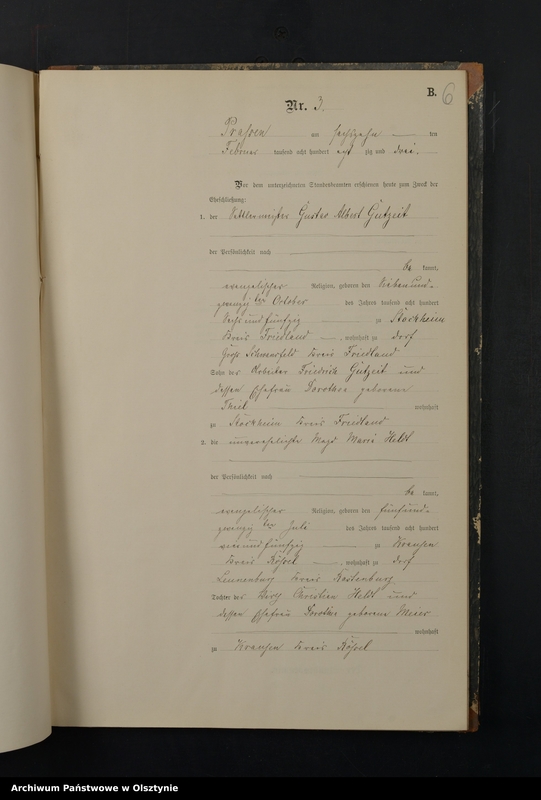 B. 6
Nr. 3.
am sechszehn ten
Februar tausend acht hundert acht zig und drei.
Vor dem unterzeichneten Standesbeamten erschienen heute zum Zweck der
Eheschließung:
1. der Sattlermeister Gustav Albert Gutzeit
der Persönlichkeit nach
be kannt,
evangelischer Religion, geboren den siebenund-
zwanzig ten October des Jahres tausend acht hundert
sechs und fünfzig zu Stockheim
Kreis Friedland, wohnhaft zu Dorf
Groß Schwansfeld Kreis Friedland
Sohn des Arbeiter Friedrich Gutzeit und
dessen Ehefrau Dorothea geborene
Thiel wohnhaft
zu Stockheim Kreis Friedland
2. die unverehelichte Magd Marie Heldt
der Persönlichkeit nach
be kannt,
evangelischer Religion, geboren den fünfund-
zwanzig ten Juli des Jahres tausend acht hundert
vier und fünfzig zu Krausen
Kreis Rößel, wohnhaft zu Dorf
Lamgarben Kreis Rastenburg
Tochter des Christian Heldt und
dessen Ehefrau Dorothea geborene Meier
wohnhaft
zu Krausen Kreis Rößel
Archiwum Państwowe w Olsztynie